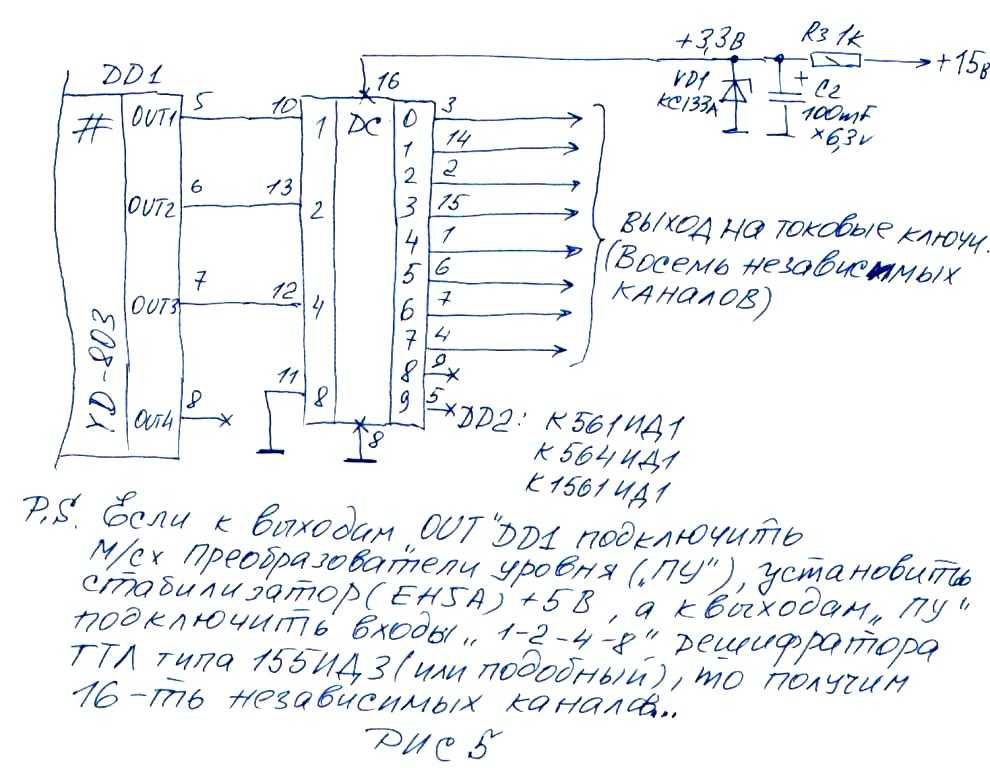 +3,3В
R3 1к
+15В
VD1
КС133А
+ C2
100mF
×6,3v
DD1
16
#
OUT1
5
10
1
DC
0
3
1
14
2
2
OUT2
6
13
2
3
15
4
1
5
6
OUT3
7
12
4
6
7
7
4
8
9
11
8
9
5
OUT4
8
8
YD-803
ВЫХОД НА ТОКОВЫЕ КЛЮЧИ.
(ВОСЕМЬ НЕЗАВИСИМЫХ
КАНАЛОВ)
DD2: К561ИД1
К564ИД1
К1561ИД1
P.S. Если к выходам „OUT" DD1 подключить
м/сх преобразователи уровня („ПУ"), установить
стабилизатор (ЕН5А) +5В, а к выходам „ПУ"
подключить входы „1-2-4-8" дешифратора
ТТЛ типа 155ИД3 (или подобный), то получим
16-ть независимых каналов...
РИС 5